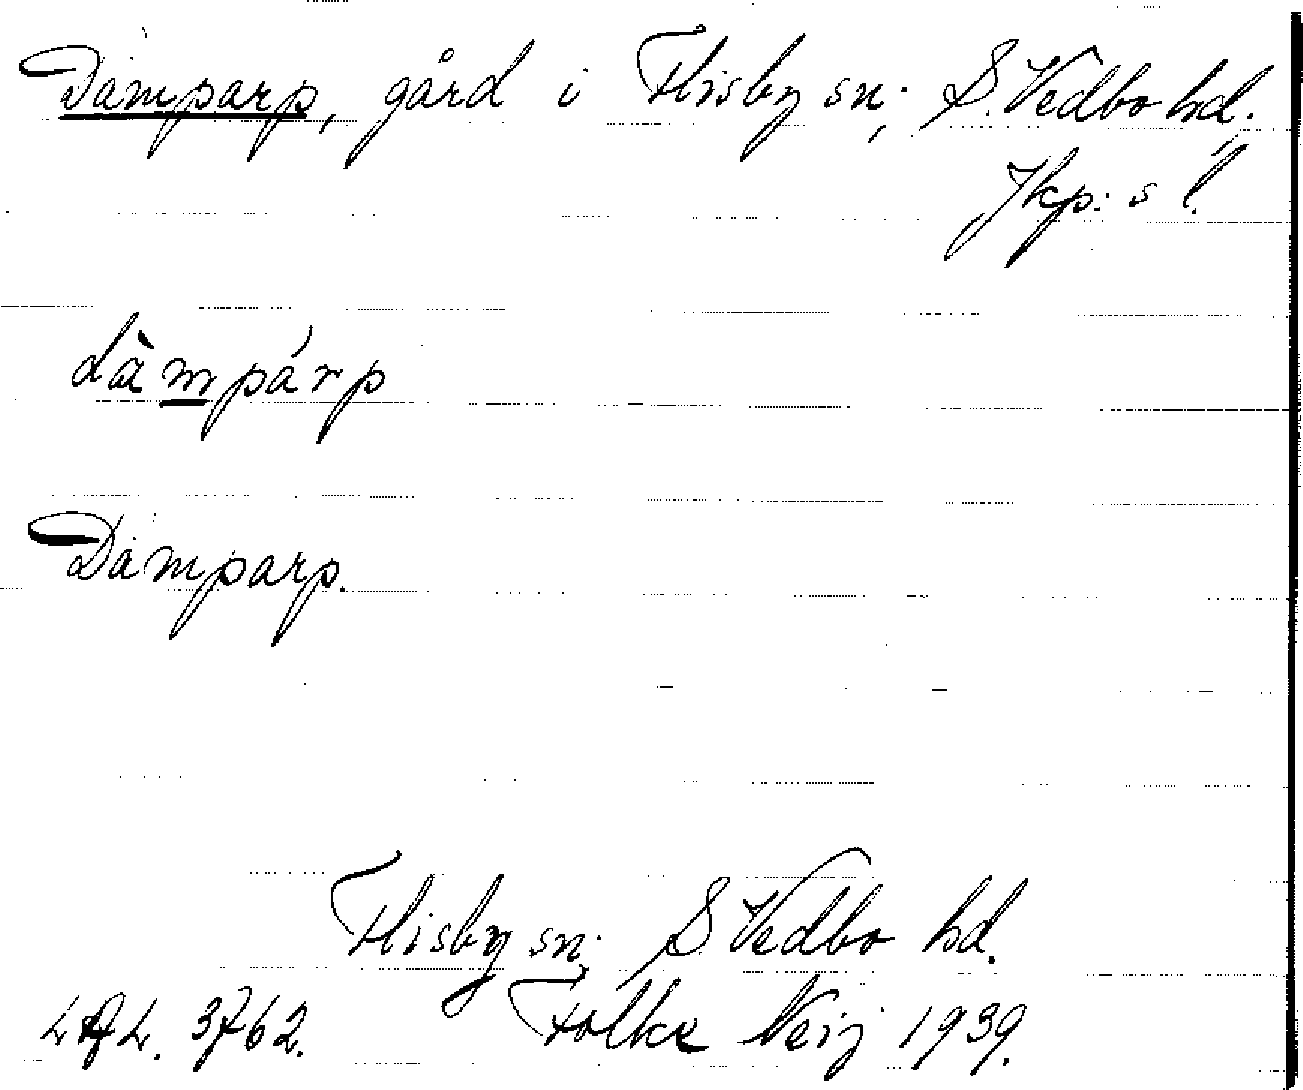 Damparp, gård i Flisby sn; S. Vedbo hd.,
Jkp: s l.
dàmpárp
Damparp.
Flisby sn; S. Vedbo hd.
3762. Folke Neij 1939.